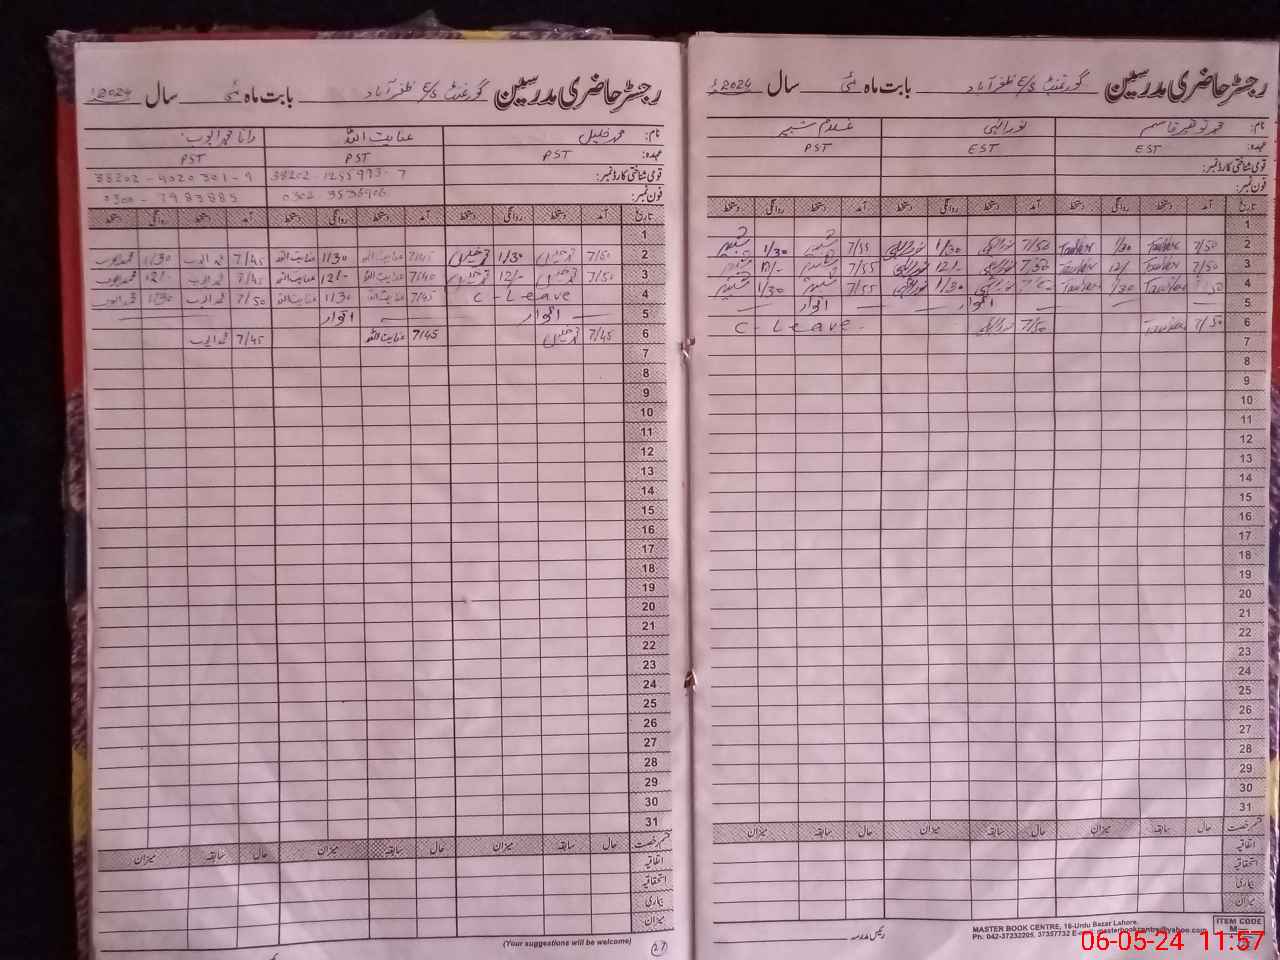 رجسٹر حاضری مدرسین گورنمنٹ E/S ظفر آباد بابت ماہ مئی سال 2024ء
نام: محمد توقیر قاسم نور الہی غلام شبیر
عہدہ: EST EST PST
قومی شناختی کارڈ نمبر:
فون نمبر:
تاریخ آمد دستخط روانگی دستخط آمد دستخط روانگی دستخط آمد دستخط روانگی دستخط
1
2 7/50 1/30 7/50 1/30 7/55 شبیر 1/30 شبیر
3 7/50 12/- 7/50 12/- 7/55 شبیر 12/- شبیر
4 7/50 1/30 7/50 1/30 7/55 شبیر 1/30 شبیر
5 اتوار اتوار
6 7/50 7/50 C-Leave
7
8
9
10
11
12
13
14
15
16
17
18
19
20
21
22
23
24
25
26
27
28
29
30
31
قسم رخصت حال سابقہ میزان حال سابقہ میزان حال سابقہ میزان
اتفاقیہ
استحقاقیہ
بیماری
میزان
رئیس مدرسہ
MASTER BOOK CENTRE, 16-Urdu Bazar Lahore.
Ph: 042-37232205, 37357732 E-mail: masterbookcentre@yahoo.com
ITEM CODE
رجسٹر حاضری مدرسین گورنمنٹ E/S ظفر آباد بابت ماہ مئی سال 2024ء
نام: محمد خلیل عنایت اللہ رانا محمد ایوب
عہدہ: PST PST PST
قومی شناختی کارڈ نمبر: 38202-1255993-7 38202-4020301-9
فون نمبر: 0300-7983885
تاریخ آمد دستخط روانگی دستخط آمد دستخط روانگی دستخط آمد دستخط روانگی دستخط
1
2 7/50 1/30 7/45 عنایت اللہ 1/30 عنایت اللہ 7/45 محمد ایوب 1/30 محمد ایوب
3 7/50 12/- 7/40 عنایت اللہ 12/- عنایت اللہ 7/45 محمد ایوب 12/- محمد ایوب
4 C-Leave 7/45 عنایت اللہ 1/30 عنایت اللہ 7/50 محمد ایوب 1/30 محمد ایوب
5 اتوار اتوار
6 7/45 7/45 عنایت اللہ 7/45 محمد ایوب
7
8
9
10
11
12
13
14
15
16
17
18
19
20
21
22
23
24
25
26
27
28
29
30
31
قسم رخصت حال سابقہ میزان حال سابقہ میزان حال سابقہ میزان
اتفاقیہ
استحقاقیہ
بیماری
میزان
(Your suggestions will be welcome)
27
06-05-24 11:57